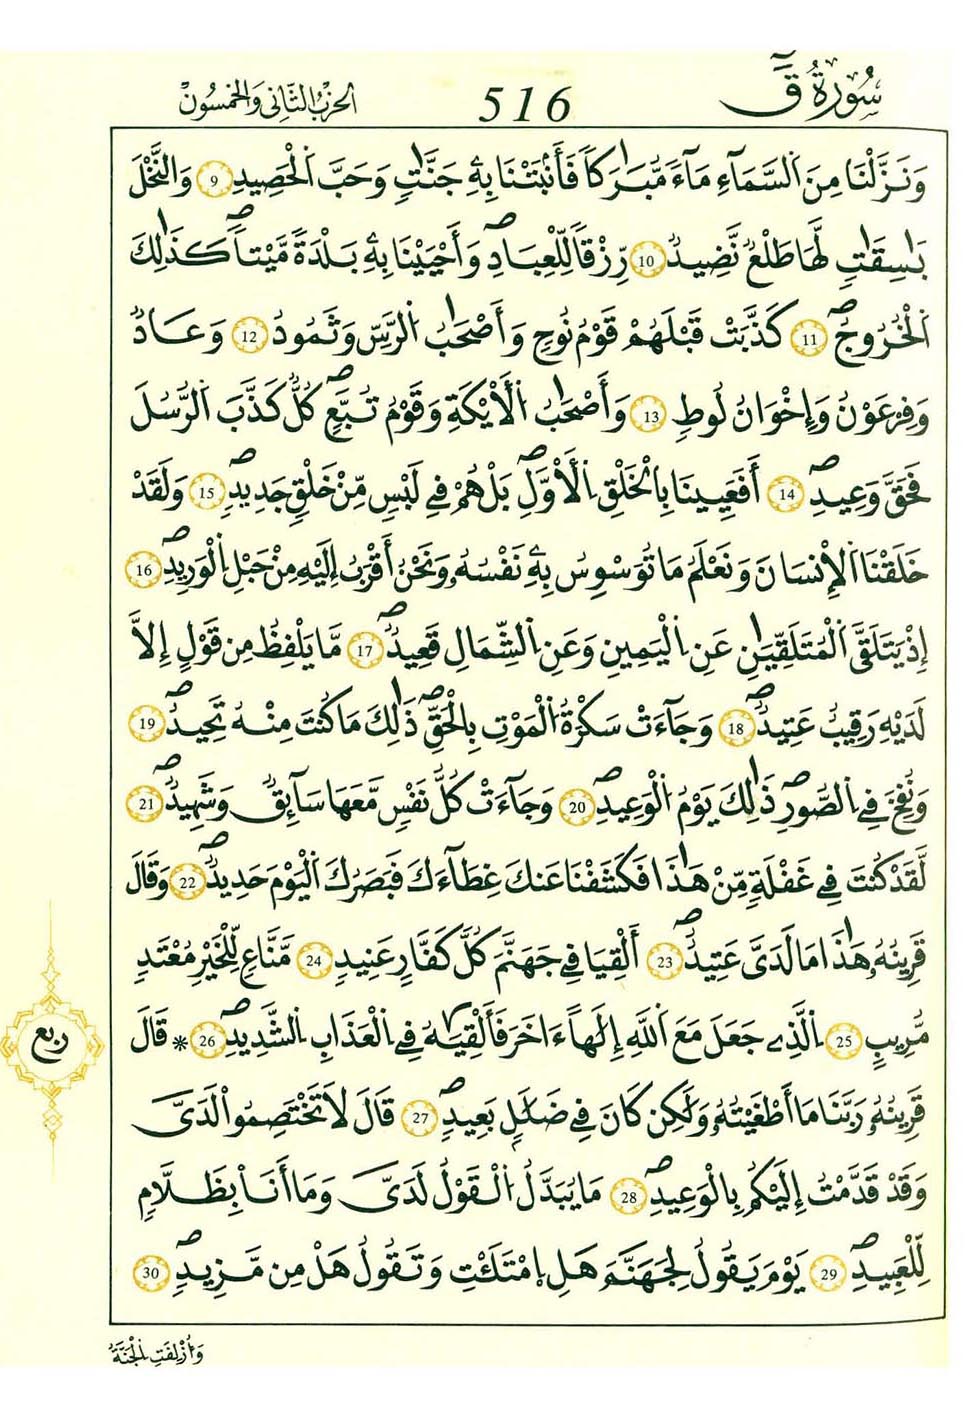 سُورَةُ قٓ
516
الحزب الثاني والخمسون
وَنَزَّلْنَا مِنَ اَ۬لسَّمَآءِ مَآءٗ مُّبَٰرَكاٗ فَأَنۢبَتْنَا بِهِۦ جَنَّٰتٖ وَحَبَّ اَ۬لْحَصِيدِ 9 وَالنَّخْلَ
بَاسِقَٰتٖ لَّهَا طَلْعٞ نَّضِيدٞ 10 رِّزْقاٗ لِّلْعِبَادِۖ وَأَحْيَيْنَا بِهِۦ بَلْدَةٗ مَّيْتاٗۖ كَذَٰلِكَ
اَ۬لْخُرُوجُۖ 11 كَذَّبَتْ قَبْلَهُمْ قَوْمُ نُوحٖ وَأَصْحَٰبُ اُ۬لرَّسِّ وَثَمُودُ 12 وَعَادٞ
وَفِرْعَوْنُ وَإِخْوَانُ لُوطٖ 13 وَأَصْحَٰبُ اُ۬لَأيْكَةِ وَقَوْمُ تُبَّعٖۖ كُلّٞ كَذَّبَ اَ۬لرُّسُلَ
فَحَقَّ وَعِيدِۖ 14 أَفَعَيِينَا بِالْخَلْقِ اِ۬لَأوَّلِۖ بَلْ هُمْ فِے لَبْسٖ مِّنْ خَلْقٖ جَدِيدٖۖ 15 وَلَقَدْ
خَلَقْنَا اَ۬لِإنسَانَ وَنَعْلَمُ مَا تُوَسْوِسُ بِهِۦ نَفْسُهُۥ وَنَحْنُ أَقْرَبُ إِلَيْهِ مِنْ حَبْلِ اِ۬لْوَرِيدِۖ 16
إِذْ يَتَلَقَّى اَ۬لْمُتَلَقِّيَٰنِ عَنِ اِ۬لْيَمِينِ وَعَنِ اِ۬لشِّمَالِ قَعِيدٞۖ 17 مَّا يَلْفِظُ مِن قَوْلٍ إِلاَّ
لَدَيْهِ رَقِيبٌ عَتِيدٞۖ 18 وَجَآءَتْ سَكْرَةُ اُ۬لْمَوْتِ بِالْحَقِّۖ ذَٰلِكَ مَا كُنتَ مِنْهُ تَحِيدُۖ 19
وَنُفِخَ فِے اِ۬لصُّورِۖ ذَٰلِكَ يَوْمُ اُ۬لْوَعِيدِۖ 20 وَجَآءَتْ كُلُّ نَفْسٖ مَّعَهَا سَآئِقٞ وَشَهِيدٞۖ 21
لَّقَدْ كُنتَ فِے غَفْلَةٖ مِّنْ هَٰذَا فَكَشَفْنَا عَنكَ غِطَآءَكَ فَبَصَرُكَ اَ۬لْيَوْمَ حَدِيدٞۖ 22 وَقَالَ
قَرِينُهُۥ هَٰذَا مَا لَدَىَّ عَتِيدٌۖ 23 أَلْقِيَا فِے جَهَنَّمَ كُلَّ كَفَّارٍ عَنِيدٖ 24 مَّنَّاعٖ لِّلْخَيْرِ مُعْتَدٖ
مُّرِيبٍ 25 اِ۬لَّذِے جَعَلَ مَعَ اَ۬للَّهِ إِلَٰهاً ءَاخَرَ فَأَلْقِيَٰهُ فِے اِ۬لْعَذَابِ اِ۬لشَّدِيدِۖ 26 * قَالَ
قَرِينُهُۥ رَبَّنَا مَا أَطْغَيْتُهُۥ وَلَٰكِن كَانَ فِے ضَلَٰلِۢ بَعِيدٖۖ 27 قَالَ لَا تَخْتَصِمُواْ لَدَىَّ
وَقَدْ قَدَّمْتُ إِلَيْكُم بِالْوَعِيدِۖ 28 مَا يُبَدَّلُ اُ۬لْقَوْلُ لَدَىَّ وَمَا أَنَا بِظَلَّٰمٖ
لِّلْعَبِيدِۖ 29 يَوْمَ يَقُولُ لِجَهَنَّمَ هَلِ اِ۪مْتَلَأْتِ وَتَقُولُ هَلْ مِن مَّزِيدٖۖ 30
ربع
وَأُزْلِفَتِ اِ۬لْجَنَّةُ